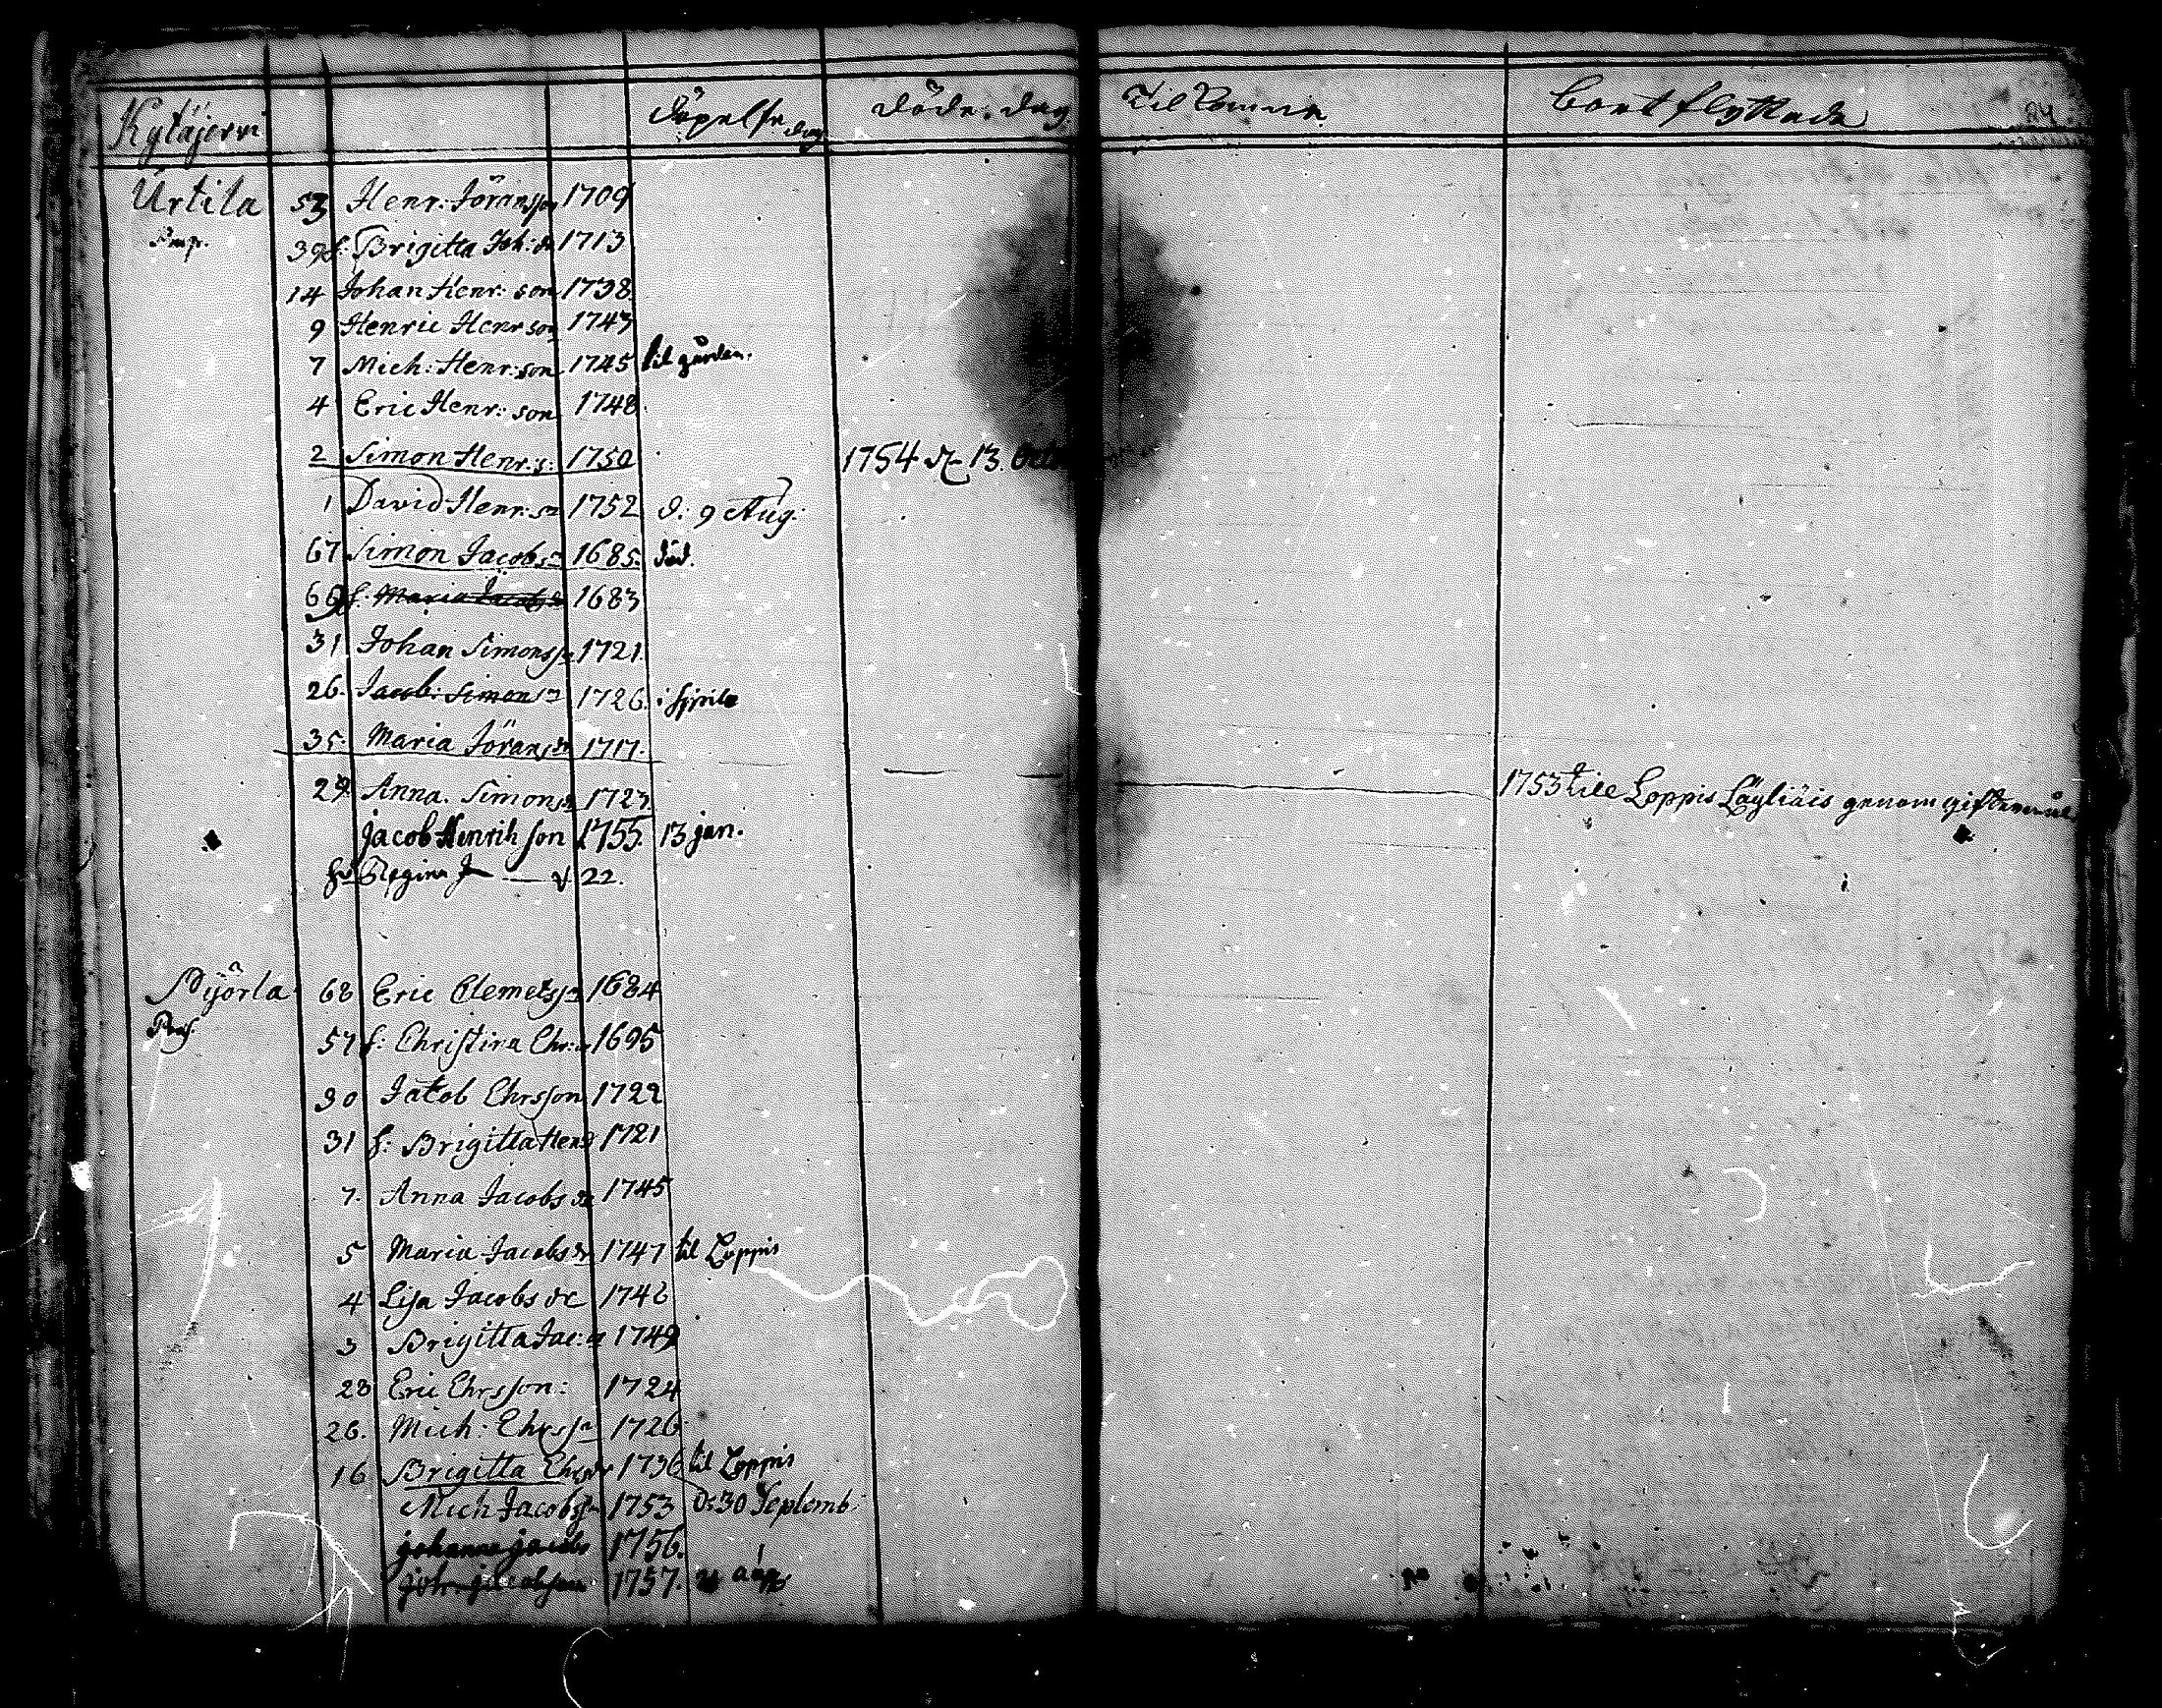 Kytäjervi Döpelse dag Döde dag Til Komne bort flyttade 24
Urtila 53 Henr: Jöransson 1709
39 h: Brigitta Joh: dr 1713
14 Johan Henr: son 1738
9 Henric Henr son 1743
7 Mich: Henr: son 1745 til gården.
4 Eric Henr: son 1748
2 Simon Henr: s: 1750 1754 d. 13. Octo
1 David Henr: sn 1752 d: 9 Aug:
67 Simon Jacobsn 1685 död.
69 h: Maria Jacobsdr 1683
31 Johan Simonssn 1721
26. Jacob: Simonsn 1726.
35 Maria Joransdr 1717.
29 Anna. Simonsdr 1723. 1753 till Loppis Läyliäis genom giftermål
jacob Henrik son 1755. 13 jan.
Regina 22.
Pyörla 68 Eric Clemetssn 1684
57 h: Christina Chr: dr 1695
30 Jacob Ehrsson 1722
31 h: Brigitta Hend 1721
7. Anna Jacobs dr 1745
5 Maria Jacobs dr 1747 til Loppis
4 Lisa Jacobs dr 1748
3 Brigitta Jac: dr 1749
28 Eric Ehrsson: 1724
26. Mich: Ehrssn 1726
16 Brigitta Ehrsdr 1736 til Loppis
Mich Jacobssn 1753 d: 30 Septemb
johanna jacobs 1756.
joh. jacobson 1757. aug